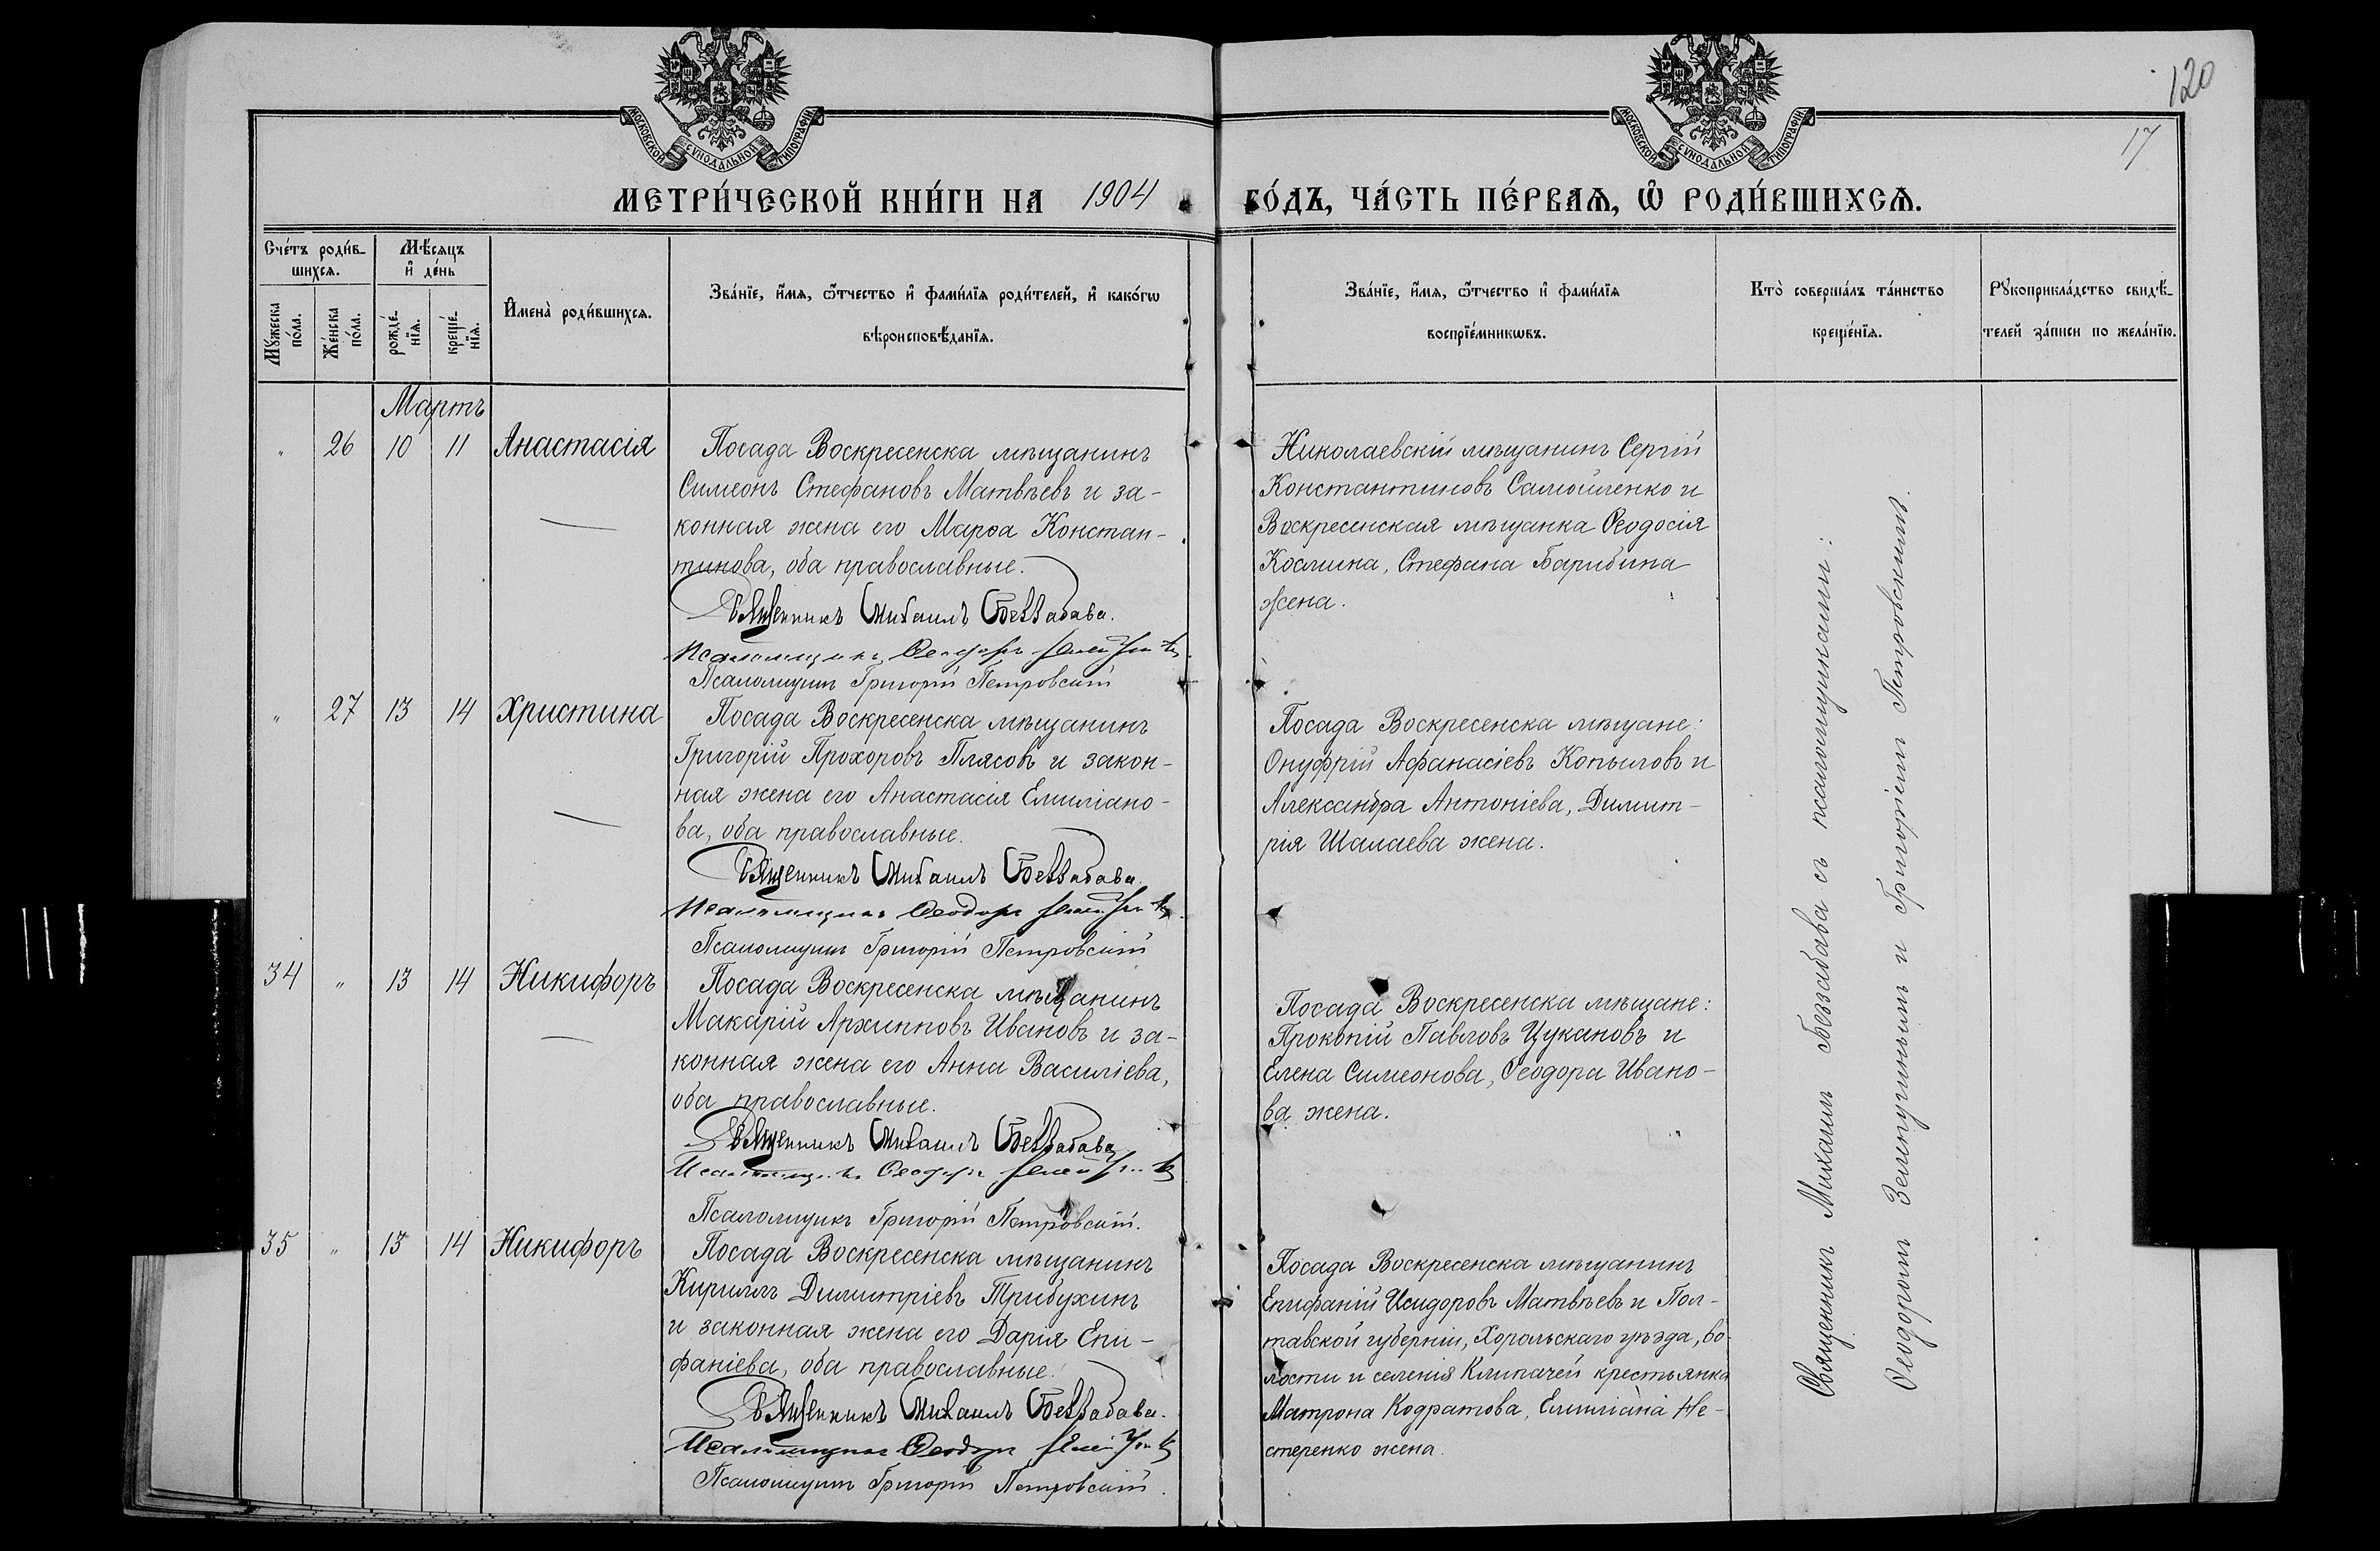 120
17
МОСКОВСКОЙ СУНОДАЛЬНОЙ ТИПОГРАФІИ
МОСКОВСКОЙ СУНОДАЛЬНОЙ ТИПОГРАФІИ
МЕТРИ́ЧЕСКОЙ КНИ́ГИ НА 1904 ГО́ДЪ, ЧА́СТЬ ПЕ́РВАѦ, Ѡ҆ РОДИ́ВШИХСѦ.
Сче́тъ роди́в-
шихсѧ.
Мꙋ́жеска по́ла.
Же́нска по́ла.
Мѣ́сяцъ
и҆ де́нь
рожде́-
нїѧ.
креще́-
нїѧ.
И҆мена̀ роди́вшихсѧ.
Зва́нїе, и҆́мѧ, ѻ҆́тчество и҆ фами́лїѧ роди́телей, и҆ како́гѡ
вѣроисповѣ́данїѧ.
Зва́нїе, и҆́мѧ, ѻ҆́тчество и҆ фами́лїѧ
воспрїе́мникѡвъ.
Кто̀ соверша́лъ та́инство
креще́нїѧ.
Рꙋкоприкла́дство свидѣ́-
телей за́писи по жела́нїю.
Мартъ
" 26 10 11 Анастасія
Посада Воскресенска мѣщанинъ
Симеонъ Стефановъ Матвѣевъ и за-
конная жена его Марѳа Констан-
тинова, оба православные.
Священникъ Михаилъ Беззабава.
Псаломщикъ Ѳеодоръ
Псаломщикъ Григорій Петровскій
Николаевскій мѣщанинъ Сергій
Константиновъ Самойленко и
Воскресенская мѣщанка Ѳеодосія
Космина, Стефана Барибина
жена.
" 27 13 14 Христина
Посада Воскресенска мѣщанинъ
Григорій Прохоровъ Плясовъ и закон-
ная жена его Анастасія Емиліано-
ва, оба православные.
Священникъ Михаилъ Беззабава.
Псаломщикъ Ѳеодоръ
Псаломщикъ Григорій Петровскій
Посада Воскресенска мѣщане:
Онуфрій Афанасіевъ Копыловъ и
Александра Антоніева, Димит-
рія Шалаева жена.
34 " 13 14 Никифоръ
Посада Воскресенска мѣщанинъ
Макарій Архипповъ Ивановъ и за-
конная жена его Анна Василіева,
оба православные.
Священникъ Михаилъ Беззабава
Псаломщикъ Ѳеодоръ
Псаломщикъ Григорій Петровскій.
Посада Воскресенска мѣщане:
Прокопій Павловъ Цукановъ и
Елена Симеонова, Ѳеодора Ивано-
ва жена.
35 " 13 14 Никифоръ
Посада Воскресенска мѣщанинъ
Кириллъ Димитріевъ Трибухинъ
и законная жена его Дарія Епи-
фаніева, оба православные.
Священникъ Михаилъ Беззабава.
Псаломщикъ Ѳеодоръ
Псаломщикъ Григорій Петровскій.
Посада Воскресенска мѣщанинъ
Епифаній Исидоровъ Матвѣевъ и Пол-
тавской губерніи, Хорольскаго уѣзда, во-
лости и селенія Клипачей крестьянка
Матрона Кодратова, Емиліана Не-
стеренко жена.
Священникъ Михаилъ Беззабава съ псаломщиками:
Ѳеодоромъ Зеленугинымъ и Григоріемъ Петровскимъ.